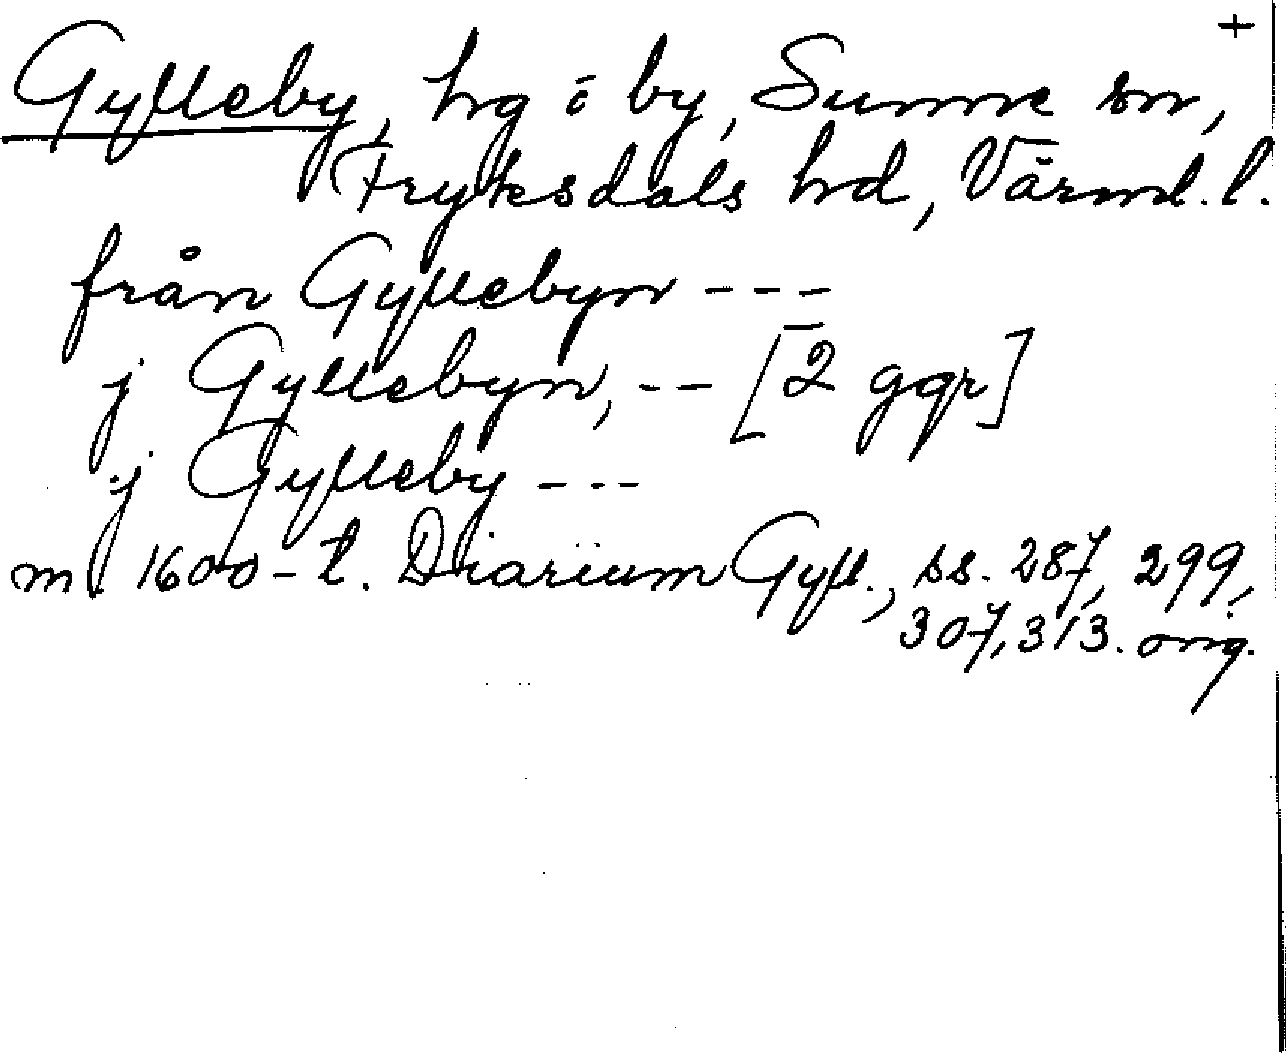 +
Gylleby, hg o by, Sunne sn,
Fryksdals hd, Värml. l.
från Gyllebyn ---
j Gyllebyn, -- [2 ggr]
j Gylleby ---
m. 1600-t. Diarium Gyll., ss. 287, 299,
307, 313. orig.